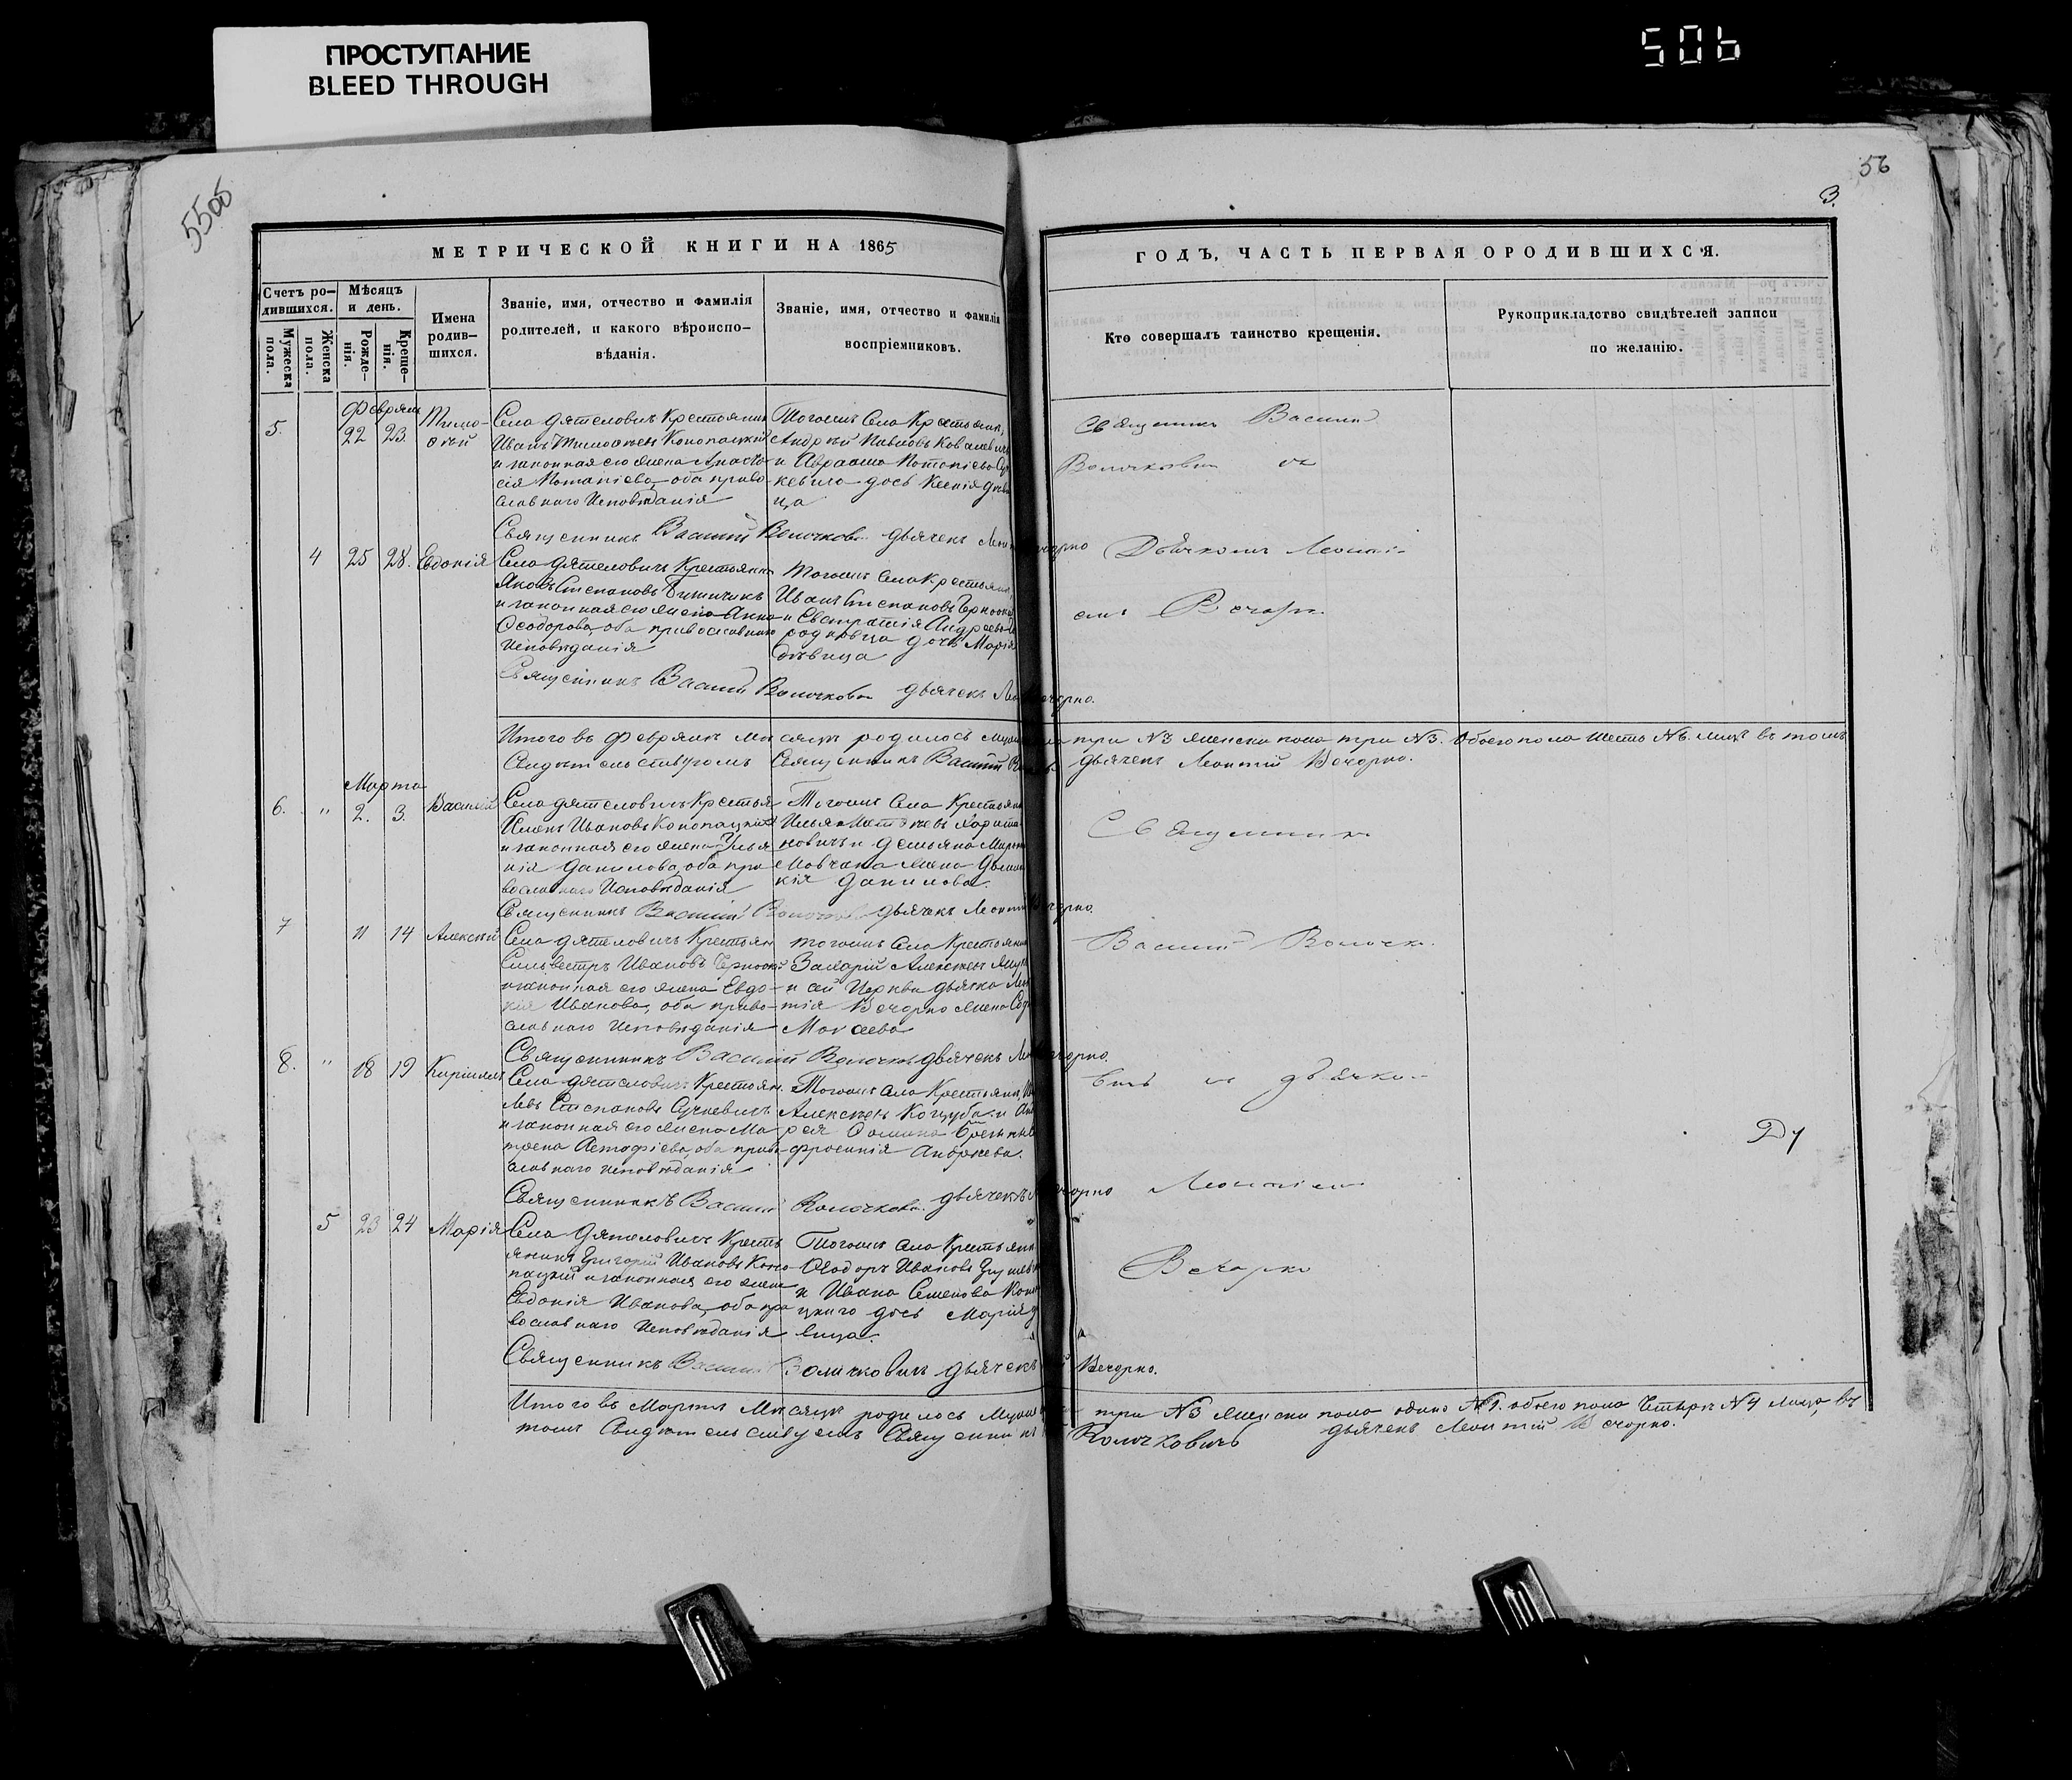 ПРОСТУПАНИЕ
BLEED THROUGH
506
55об
56
3.
МЕТРИЧЕСКОЙ КНИГИ НА 1865
ГОДЪ, ЧАСТЬ ПЕРВАЯ О РОДИВШИХСЯ.
Счетъ ро-
дившихся.
Мужеска
пола.
Женска
пола.
Мѣсяцъ
и день.
Рожде-
нія.
Креще-
нія.
Имена
родив-
шихся.
Званіе, имя, отчество и фамилія
родителей, и какого вѣроиспо-
вѣданія.
Званіе, имя, отчество и фамилія
воспріемниковъ.
Кто совершалъ таинство крещенія.
Рукоприкладство свидѣтелей записи
по желанію.
Февраля
5. 22 23. Тимо-
ѳей
Села Дятеловичъ Крестьянинъ
Иванъ Тимоѳеевъ Конопацкій
и законная его жена Анаста-
сія Потапіева, оба право-
славнаго Исповѣданія
Тогожъ Села Крестьянинъ
Андрей Павловъ Ковалевичъ
и Авраама Потапіева
дочь Ксенія дѣви-
ца
Священникъ Василій
Волочковичъ и
Священникъ Василій Волочкович дьячекъ Леонтій Вечорко
4 25 28. Евдокія
Села Дятеловичъ Крестьянинъ
Яковъ Степановъ
и законная его жена Анна
Ѳеодорова, оба православнаго
Исповѣданія
Тогожъ Села Крестьянинъ
Иванъ Степановъ Черноокій
и Евстратія Андреева
дочь Марія
дѣвица
Дьячкомъ Леонті-
емъ Вечорк.
Священникъ Василій Волочкович дьячекъ Леонтій Вечорко.
Итого въ Февралѣ мѣсяцѣ родилось мужеска пола три №3 женска пола три №3. Обоего пола шесть №6. лицъ въ томъ
Свидѣтельствуемъ Священникъ Василій дьячекъ Леонтій Вечорко.
Марта
6. " 2. 3. Василій
Села Дятеловичъ Крестьян
Ивановъ Конопацкій
и законная его жена Улья-
нія Данилова, оба пра-
вославнаго Исповѣданія
Тогожъ Села Крестьянинъ
Илья Матѳеевъ Харито-
новичъ и Демьяна
Мовчана жена
кія Данилова.
Священник
Священникъ Василій Волочкович дьячекъ Леонтій Вечорко.
7 11 14 Алексѣй
Села Дятеловичъ Крестьян
Сильвестръ Ивановъ Черноокій
и законная его жена Евдо-
кія Иванова, оба право-
славнаго Исповѣданія
Тогожъ Села Крестьянинъ
Захарій Алексѣевъ
и сей Церкви дьячка Леон-
тія Вечорко жена
Моисеева
Василій Волочко-
Священникъ Василій Волочкович дьячекъ Леонтій Вечорко.
8. " 18 19 Кириллъ
Села Дятеловичъ Крестьян.
Левъ Степановъ Сучкевичъ
и законная его жена Ма-
трона Астафіева, оба право-
славнаго исповѣданія
Тогожъ Села Крестьянинъ
Алексѣевъ Коцуба и
Ѳомина
фросинія Андреева.
вичъ и дьячко-
Священникъ Василій Волочкович дьячекъ Вечорко
Леонтіем
5 23 24 Марія
Села Дятеловичъ Кресть-
янинъ Григорій Ивановъ Коно-
пацкій и законная его жена
Евдокія Иванова, оба пра-
вославнаго Исповѣданія
Тогожъ Села Крестьянин
Ѳеодоръ Ивановъ
и Ивана Семенова Коно-
пацкаго дочь Марія дѣ-
вица.
Вечорко
Священникъ Василій Волочковичъ дьячекъ Вечорко.
Итого въ Мартѣ Мѣсяцѣ родилось Мужеска три №3 женска пола одна №1. обоего пола Четыре №4 лица, въ
томъ Свидѣтельствуемъ Священникъ Волочковичъ дьячекъ Леонтій Вечорко.